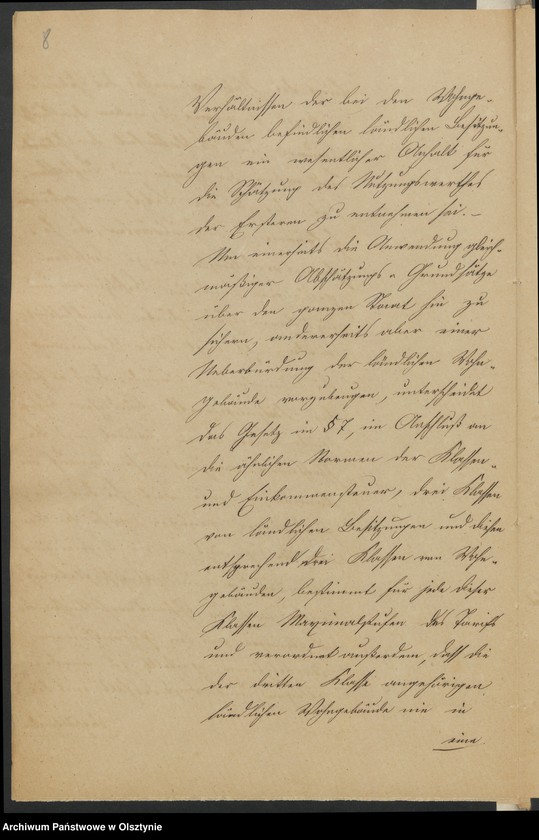 8
Verhältnissen der bei den Wohnge-
bäuden befindlichen ländlichen Besitzun-
gen ein wesentlicher Anhalt für
die Schätzung des Nutzungswerthes
der Ersteren zu entnehmen sei. –
Um einerseits die Anwendung gleich-
mäßiger Abschätzungs-Grundsätze
über den ganzen Staat hin zu
sichern, andererseits aber einer
Ueberbürdung der ländlichen Wohn-
gebäude vorzubeugen, unterscheidet
das Gesetz im § 7, im Anschluß an
die ähnlichen Normen der Klassen-
und Einkommensteuer, drei Klassen
von ländlichen Besitzungen und diesen
entsprechend drei Klassen von Wohn-
gebäuden, bestimmt für jede dieser
Klassen Maximalstufen des Tarifs
und verordnet außerdem, daß die
der dritten Klasse angehörigen
ländlichen Wohngebäude nie in
eine
Archiwum Państwowe w Olsztynie